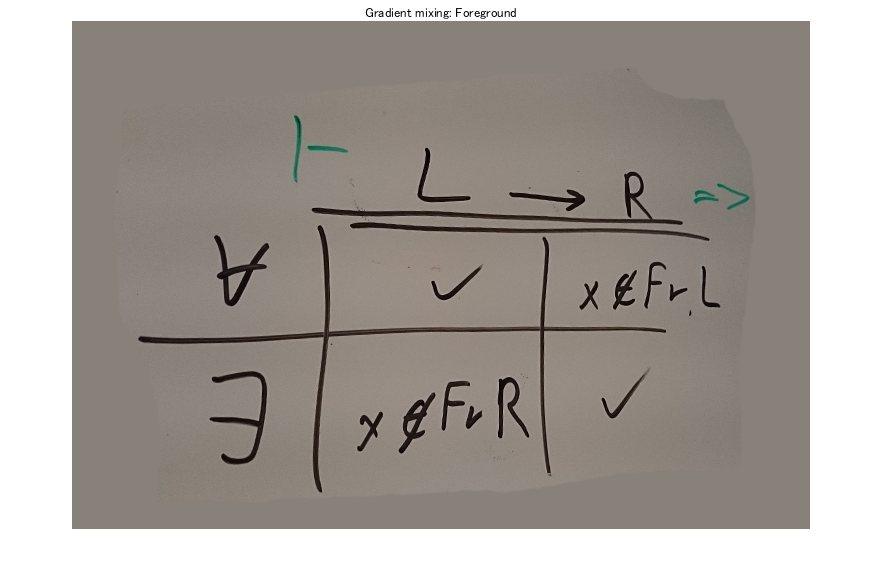 Gradient mixing: Foreground
⊢ L → R ⇒
∀ ✓ x ∉ Fr L
∃ x ∉ Fr R ✓